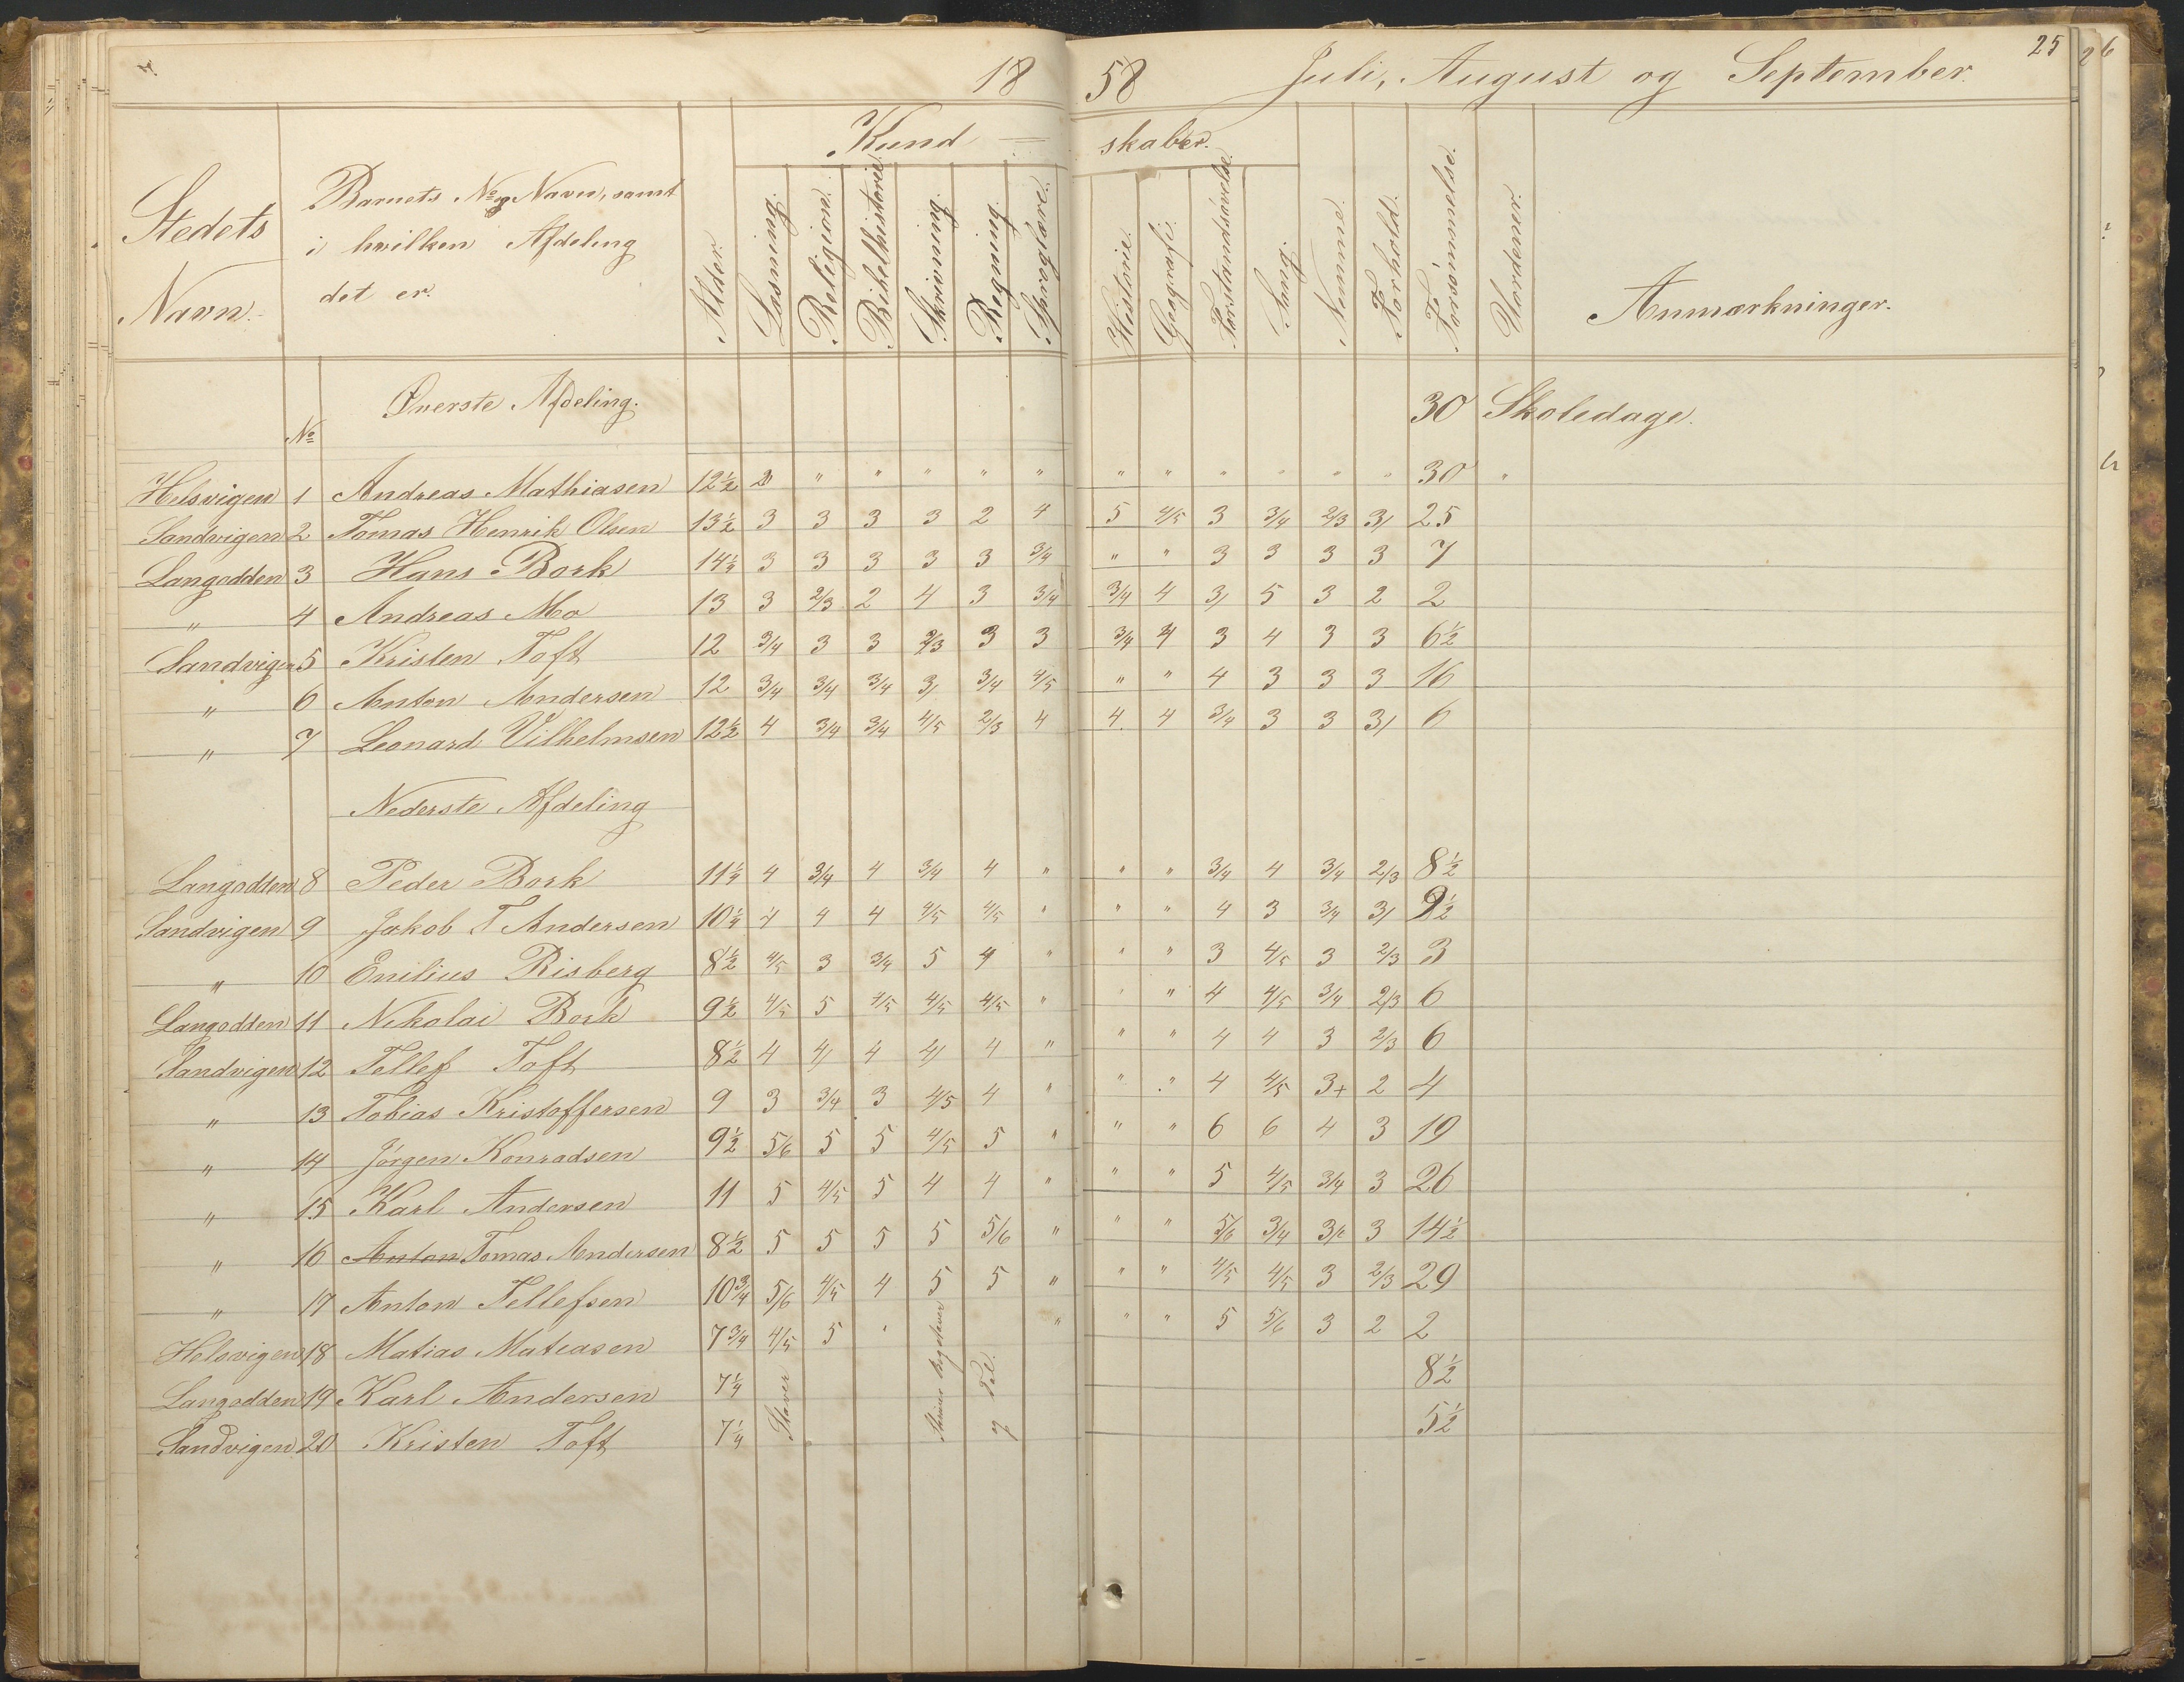 1858 Juli, August og September. 25
Stedets Navn.
Barnets No og Navn, samt
i hvilken Afdeling
det er.
Kundskaber.
Alder. Læsning. Religion. Bibelhistorie. Skrivning. Regning. Sproglære. Historie. Geografi. Forstandsøvelse. Sang. Nemme. Forhold. Forsømmelse. Vordener. Anmærkninger.
No Øverste Afdeling. 30 Skoledage.
Helsvigen 1 Andreas Mathiasen 12½ " " " " " " " " " " " " 30 "
Sandvigen 2 Tomas Henrik Olsen 13½ 3 3 3 3 2 4 5 4/5 3 3/4 2/3 3/ 25
Langodden 3 Hans Bork 14¼ 3 3 3 3 3 3/4 " " 3 3 3 3 7
" 4 Andreas Mo 13 3 2/3 2 4 3 3/4 3/4 4 3/ 5 3 2 2
Sandvigen 5 Kristen Toft 12 3/4 3 3 2/3 3 3 3/4 4 3 4 3 3 6½
" 6 Anton Andersen 12 3/4 3/4 3/4 3/ 3/4 4/5 " " 4 3 3 3 16
" 7 Leonard Vilhelmsen 12½ 4 3/4 3/4 4/5 2/3 4 4 4 3/4 3 3 3/ 6
Nederste Afdeling
Langodden 8 Peder Bork 11¼ 4 3/4 4 3/4 4 " " " 3/4 4 3/4 2/3 8½
Sandvigen 9 Jakob T Andersen 10¼ 4 4 4 4/5 4/5 " " " 4 3 3/4 3/ 9½
" 10 Emilius Risberg 8½ 4/5 3 3/4 5 4 " " " 3 4/5 3 2/3 3
Langodden 11 Nikolai Bork 9½ 4/5 5 4/5 4/5 4/5 " " " 4 4/5 3/4 2/3 6
Sandvigen 12 Tellef Toft 8½ 4 4/ 4 4/ 4 " " " 4 4 3 2/3 6
" 13 Tobias Kristoffersen 9 3 3/4 3 4/5 4 " " " 4 4/5 3+ 2 4
" 14 Jørgen Konradsen 9½ 5/6 5 5 4/5 5 " " " 6 6 4 3 19
" 15 Karl Andersen 11 5 4/5 5 4 4 " " " 5 4/5 3/4 3 26
" 16 Anton Tomas Andersen 8½ 5 5 5 5 5/6 " " " 5/6 3/4 3 14½
" 17 Anton Tellefsen 10¾ 5/6 4/5 4 5 5 " " " 4/5 4/5 3 2/3 29
Helsvigen 18 Matias Mateasen 7¾ 4/5 5 " " " " 5 5/6 3 2 2
Langodden 19 Karl Andersen 7¼ 8½
Sandvigen 20 Kristen Toft 7¼ 5½
Staver
Bogstaver
og Tal.